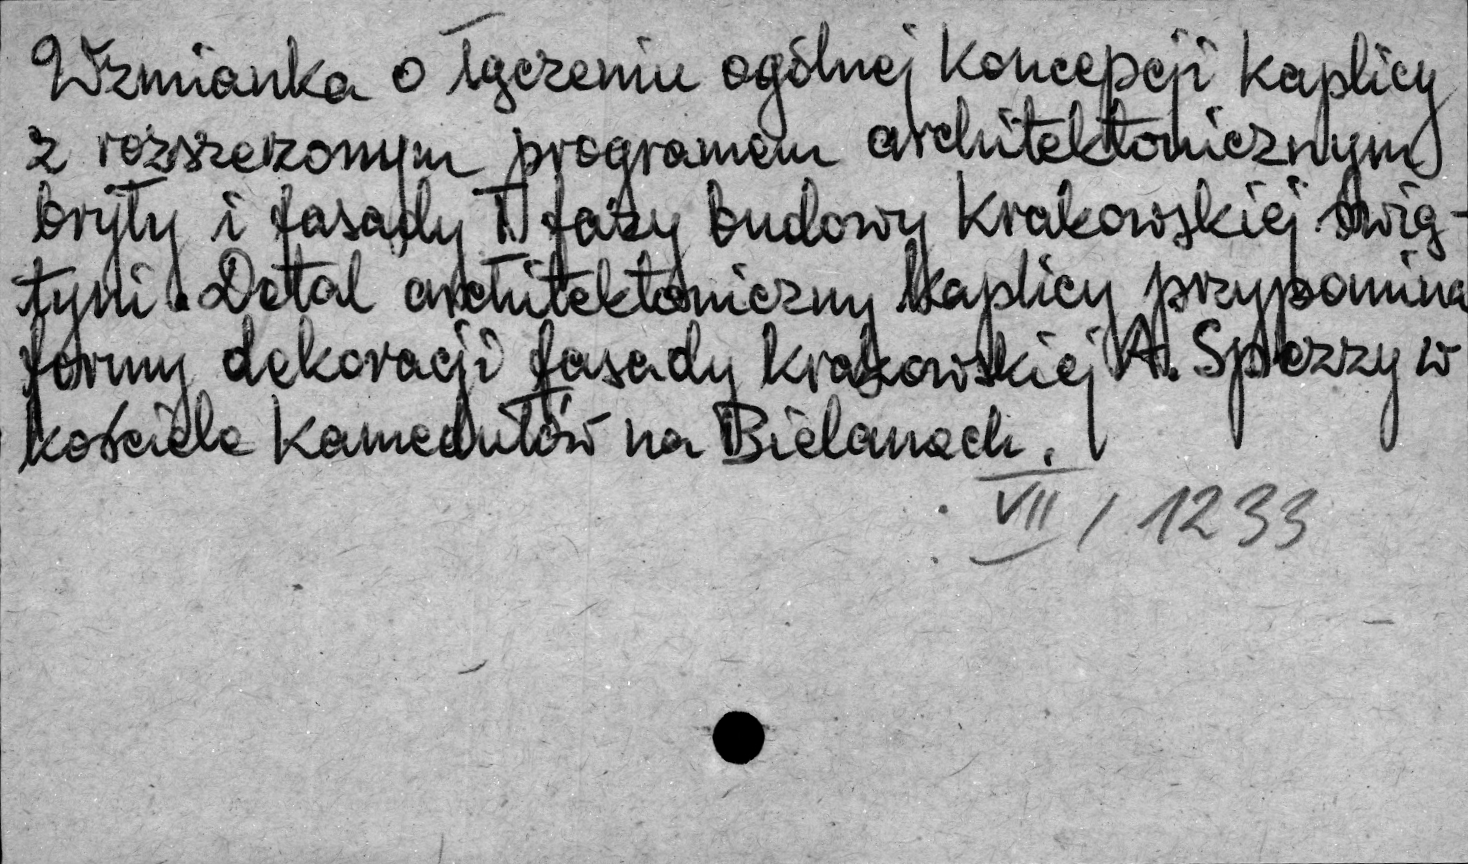 Wzmianka o łączeniu ogólnej koncepcji kaplicy
z rozszerzonym programem architektonicznym
bryły i fasady II fazy budowy krakowskiej świą-
tyni. Detal architektoniczny kaplicy przypomina
formy dekoracji fasady krakowskiej A. Spezzy w
kościele Kamedułów na Bielanach.
VII / 1233